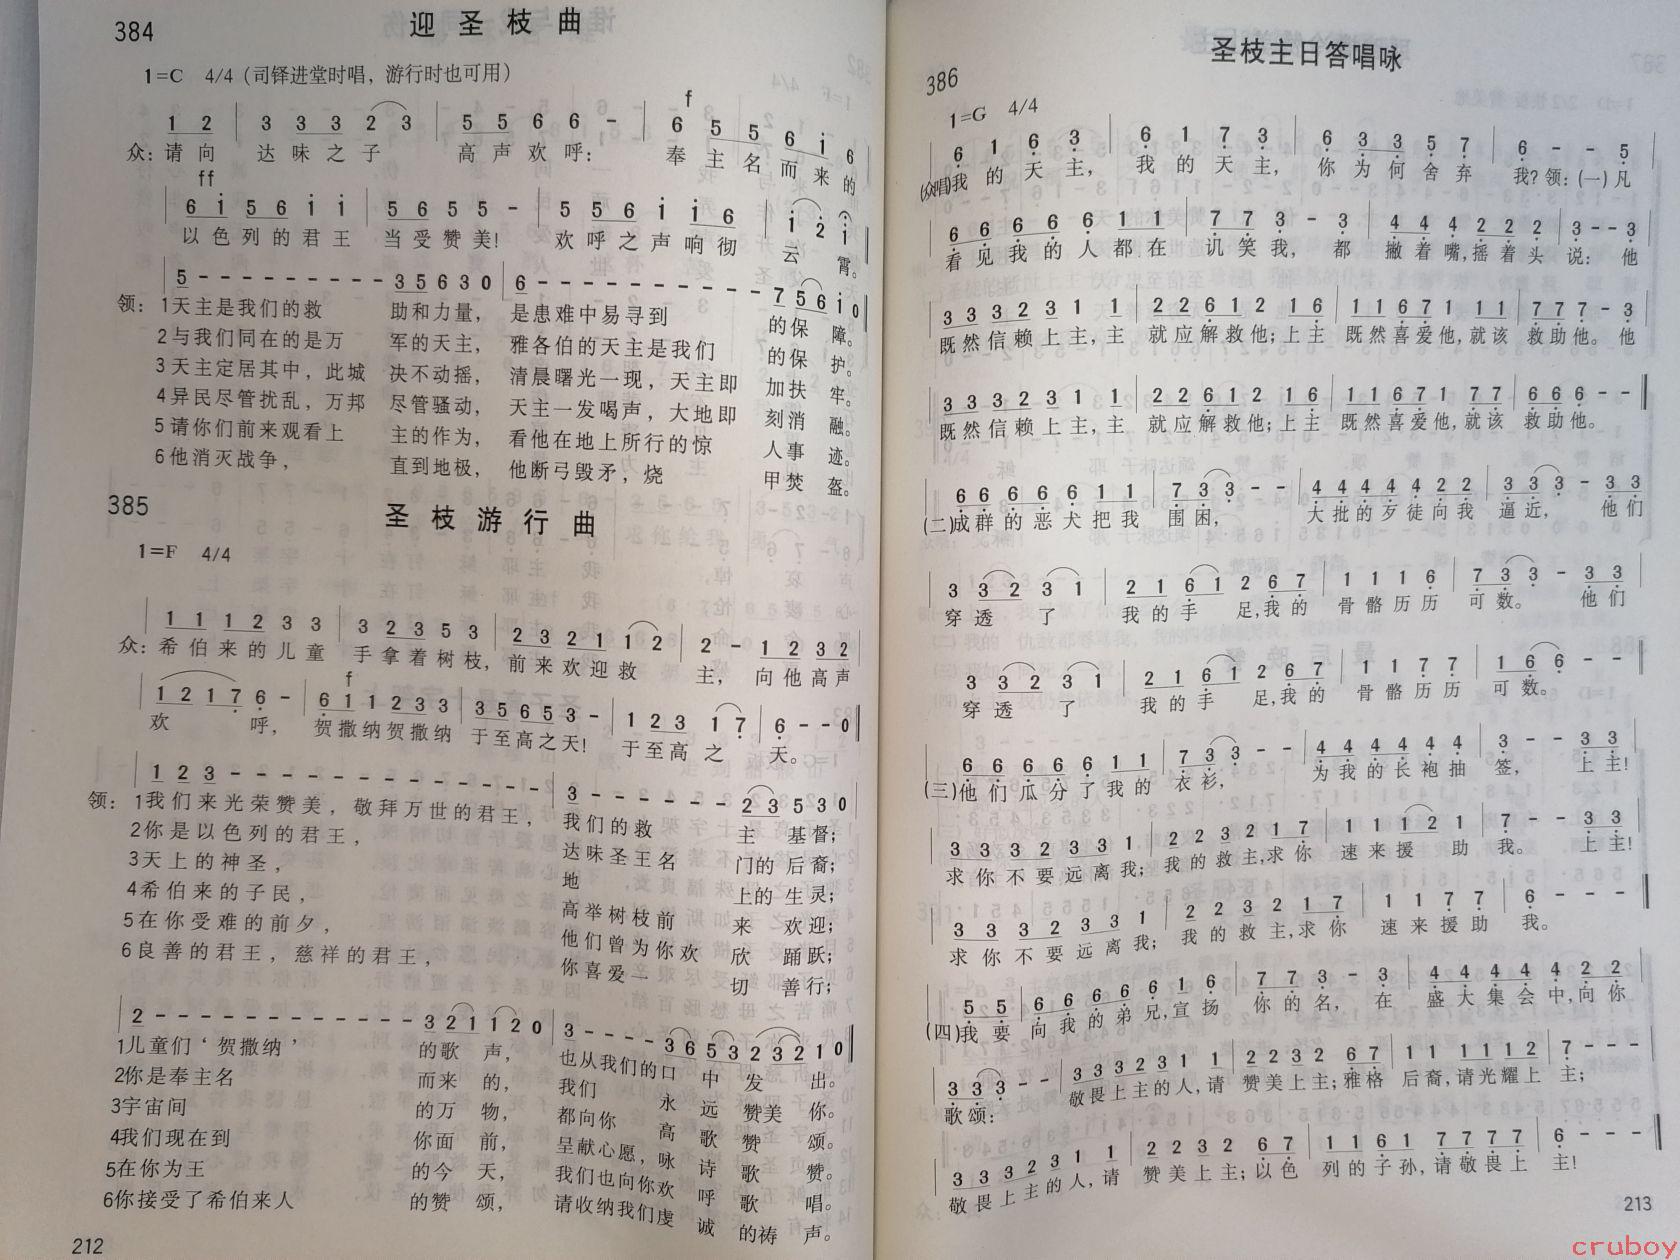 384 迎圣枝曲
1=C 4/4 (司铎进堂时唱，游行时也可用)
f
1 2 | 3 3 3 2 3 | 5 5 6 6 - | 6 5 5 6 i 6
众: 请向 达味之子 高声欢呼: 奉主名而来的
ff
6 i 5 6 i i | 5 6 5 5 - | 5 5 6 i i 6 | i 2 i
以色列的君王 当受赞美! 欢呼之声响彻 云霄。
5 - - - - - - - 3 5 6 3 0 | 6 - - - - - - - - - 7 5 6 i 0
领: 1天主是我们的救 助和力量, 是患难中易寻到 的保 障。
2与我们同在的是万 军的天主, 雅各伯的天主是我们 的保 护。
3天主定居其中，此城 决不动摇, 清晨曙光一现，天主即 加扶 牢。
4异民尽管扰乱，万邦 尽管骚动, 天主一发喝声，大地即 刻消 融。
5请你们前来观看上 主的作为, 看他在地上所行的惊 人事 迹。
6他消灭战争， 直到地极, 他断弓毁矛，烧 甲焚 盔。
385 圣枝游行曲
1=F 4/4
1 1 1 2 3 3 | 3 2 3 5 3 | 2 3 2 1 1 2 | 2 - 1 2 3 2
众: 希伯来的儿童 手拿着树枝, 前来欢迎救 主, 向他高声
f
1 2 1 7 6 - | 6 1 1 2 3 3 | 3 5 6 5 3 - | 1 2 3 1 7 | 6 - - 0
欢 呼, 贺撒纳贺撒纳 于至高之天! 于至高 之 天。
1 2 3 - - - - - - - - - - - - | 3 - - - - - - 2 3 5 3 0
领: 1我们来光荣赞美，敬拜万世的君王， 我们的救 主 基督;
2你是以色列的君王， 达味圣王名 门的 后裔;
3天上的神圣， 地 上的 生灵;
4希伯来的子民， 高举树枝前 来 欢迎;
5在你受难的前夕， 他们曾为你欢 欣 踊跃;
6良善的君王，慈祥的君王， 你喜爱一 切 善行;
2 - - - - - - - - - - - 3 2 1 1 2 0 | 3 - - - - 3 6 5 3 2 3 2 1 0
1儿童们‘贺撒纳’ 的歌 声, 也从我们的口 中 发 出。
2你是奉主名 而来 的, 我们 永 远 赞美 你。
3宇宙间 的万 物, 都向你 高 歌 赞 颂。
4我们现在到 你面 前, 呈献心愿，咏 诗 歌 赞。
5在你为王 的今 天, 我们也向你欢 呼 歌 唱。
6你接受了希伯来人 的赞 颂, 请收纳我们虔 诚 的祷 声。
212
386 圣枝主日答唱咏
1=G 4/4
6 1 6 3 | 6 1 7 3 | 6 3 3 5 7 | 6 - - 5
(众唱)我的天主, 我的天主, 你为何舍弃 我? 领: (一)凡
6 6 6 6 6 1 1 | 7 7 3 - 3 | 4 4 4 2 2 2 | 3 - - 3
看见我的人都在 讥笑我, 都 撇着嘴,摇着头 说: 他
3 3 3 2 3 1 1 | 2 2 6 1 2 1 6 | 1 1 6 7 1 1 1 | 7 7 7 - 3
既然信赖上主, 主 就应解救他; 上主 既然喜爱他, 就该 救助他。 他
3 3 3 2 3 1 1 | 2 2 6 1 2 1 6 | 1 1 6 7 1 7 7 | 6 6 6 - -
既然信赖上主, 主 就应解救他; 上主 既然喜爱他, 就该 救助他。
6 6 6 6 6 1 1 | 7 3 3 - - | 4 4 4 4 4 2 2 | 3 3 3 - 3 3
(二)成群的恶犬把我 围困, 大批的歹徒向我 逼近, 他们
3 3 2 3 1 | 2 1 6 1 2 6 7 | 1 1 1 6 | 7 3 3 - 3 3
穿透 了 我的手 足,我的 骨骼历历 可数。 他们
3 3 2 3 1 | 2 1 6 1 2 6 7 | 1 1 7 7 | 1 6 6 - -
穿透 了 我的手 足,我的 骨骼历历 可数。
6 6 6 6 6 1 1 | 7 3 3 - - | 4 4 4 4 4 4 | 3 - - 3 3
(三)他们瓜分了我的 衣衫, 为我的长袍抽 签, 上主!
3 3 3 2 3 3 1 | 2 2 3 2 1 7 | 1 1 1 2 1 | 7 - - 3 3
求你不要远离我; 我的救主,求你 速来援 助 我。 上主!
3 3 3 2 3 3 | 2 2 3 2 1 7 | 1 1 7 7 | 6 - - -
求你不要远离我; 我的救主,求你 速来援助 我。
5 5 | 6 6 6 6 6 1 6 | 7 7 3 - 3 | 4 4 4 4 4 2 2
(四)我要 向我的弟兄,宣扬 你的名, 在 盛大集会中,向你
3 3 3 - - | 3 3 3 2 3 1 1 | 2 2 3 2 6 7 | 1 1 1 1 1 2 | 7 - - -
歌颂: 敬畏上主的人, 请 赞美上主; 雅格 后裔,请光耀上 主;
3 3 3 2 3 1 1 | 2 2 3 2 6 7 | 1 1 6 1 7 7 7 7 | 6 - - -
敬畏上主的人, 请 赞美上主; 以色 列的子孙,请敬畏上 主!
213
cruboy